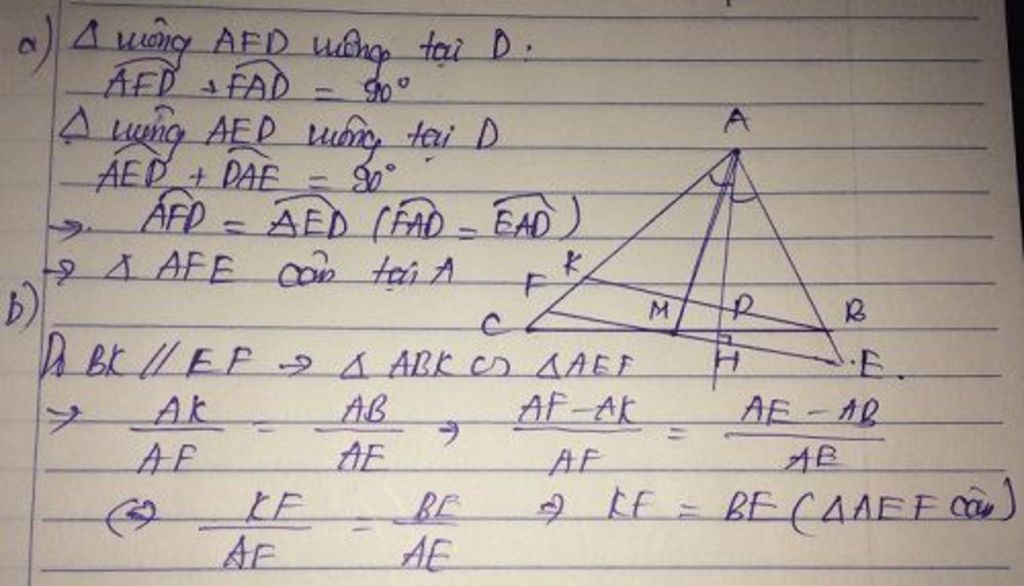 a) Δ vuông AFD vuông tại D:
AFD + FAD = 90°
Δ vuông AED vuông tại D
AED + DAE = 90°
→ AFD = AED (FAD = EAD)
→ Δ AFE cân tại A
b)
Do BK // EF → Δ ABK ∽ Δ AEF
→ AK/AF = AB/AE → AF - AK/AF = AE - AB/AE
(⇔) KF/AF = BE/AE ⇒ KF = BE (Δ AEF cân)
A
K
F
C
M
D
B
H
E